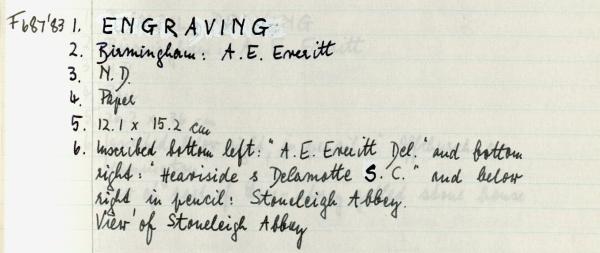 F687'83 1. ENGRAVING.
2. Birmingham: A.E. Everitt
3. N.D.
4. Paper
5. 12.1 x 15.2 cm
6. Inscribed bottom left: "A.E. Everitt Del." and bottom
right: "Heaviside s Delamotte S.C." and below
right in pencil: Stoneleigh Abbey.
View of Stoneleigh Abbey